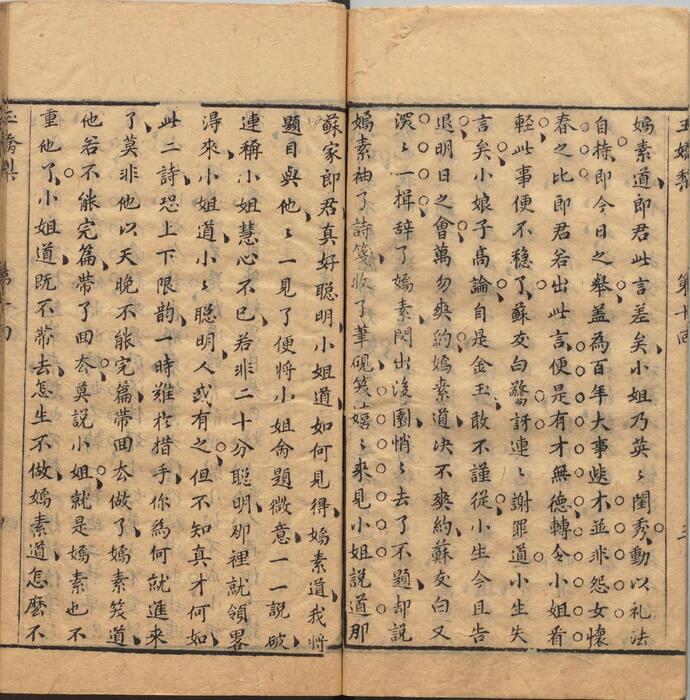 玉嬌梨 第十回
嫣素道郎君此言差矣小姐乃英〻閨秀動以礼法
自持即今日之舉盖為百年大事憐才並非怨女懷
春之比郎君若出此言便是有才無德轉令小姐看
輕此事便不稳了蘇友白驚訝連〻謝罪道小生失
言矣小娘子高論自是金玉敢不謹從小生今且告
退明日之會萬勿爽約嫣素道决不爽約蘇友白又
深〻一揖辞了嫣素閃出後園悄〻去了不題却説
嫣素袖了詩箋收了筆硯笑嬉〻來見小姐説道那
蘇家郎君真好聪明小姐道如何見得嫣素道我將
題目與他〻一見了便將小姐命題微意一一説破
連稱小姐慧心不已若非二十分聪明那裡就領畧
得來小姐道小〻聪明人或有之但不知真才何如
此二詩恐上下限韵一時難於措手你為何就進來
了莫非他以天晚不能完篇帶回去做了嫣素笑道
他若不能完篇帶了回去莫説小姐就是嫣素也不
重他了小姐道既不帶去怎生不做嫣素道怎麽不
玉嬌梨 第十回